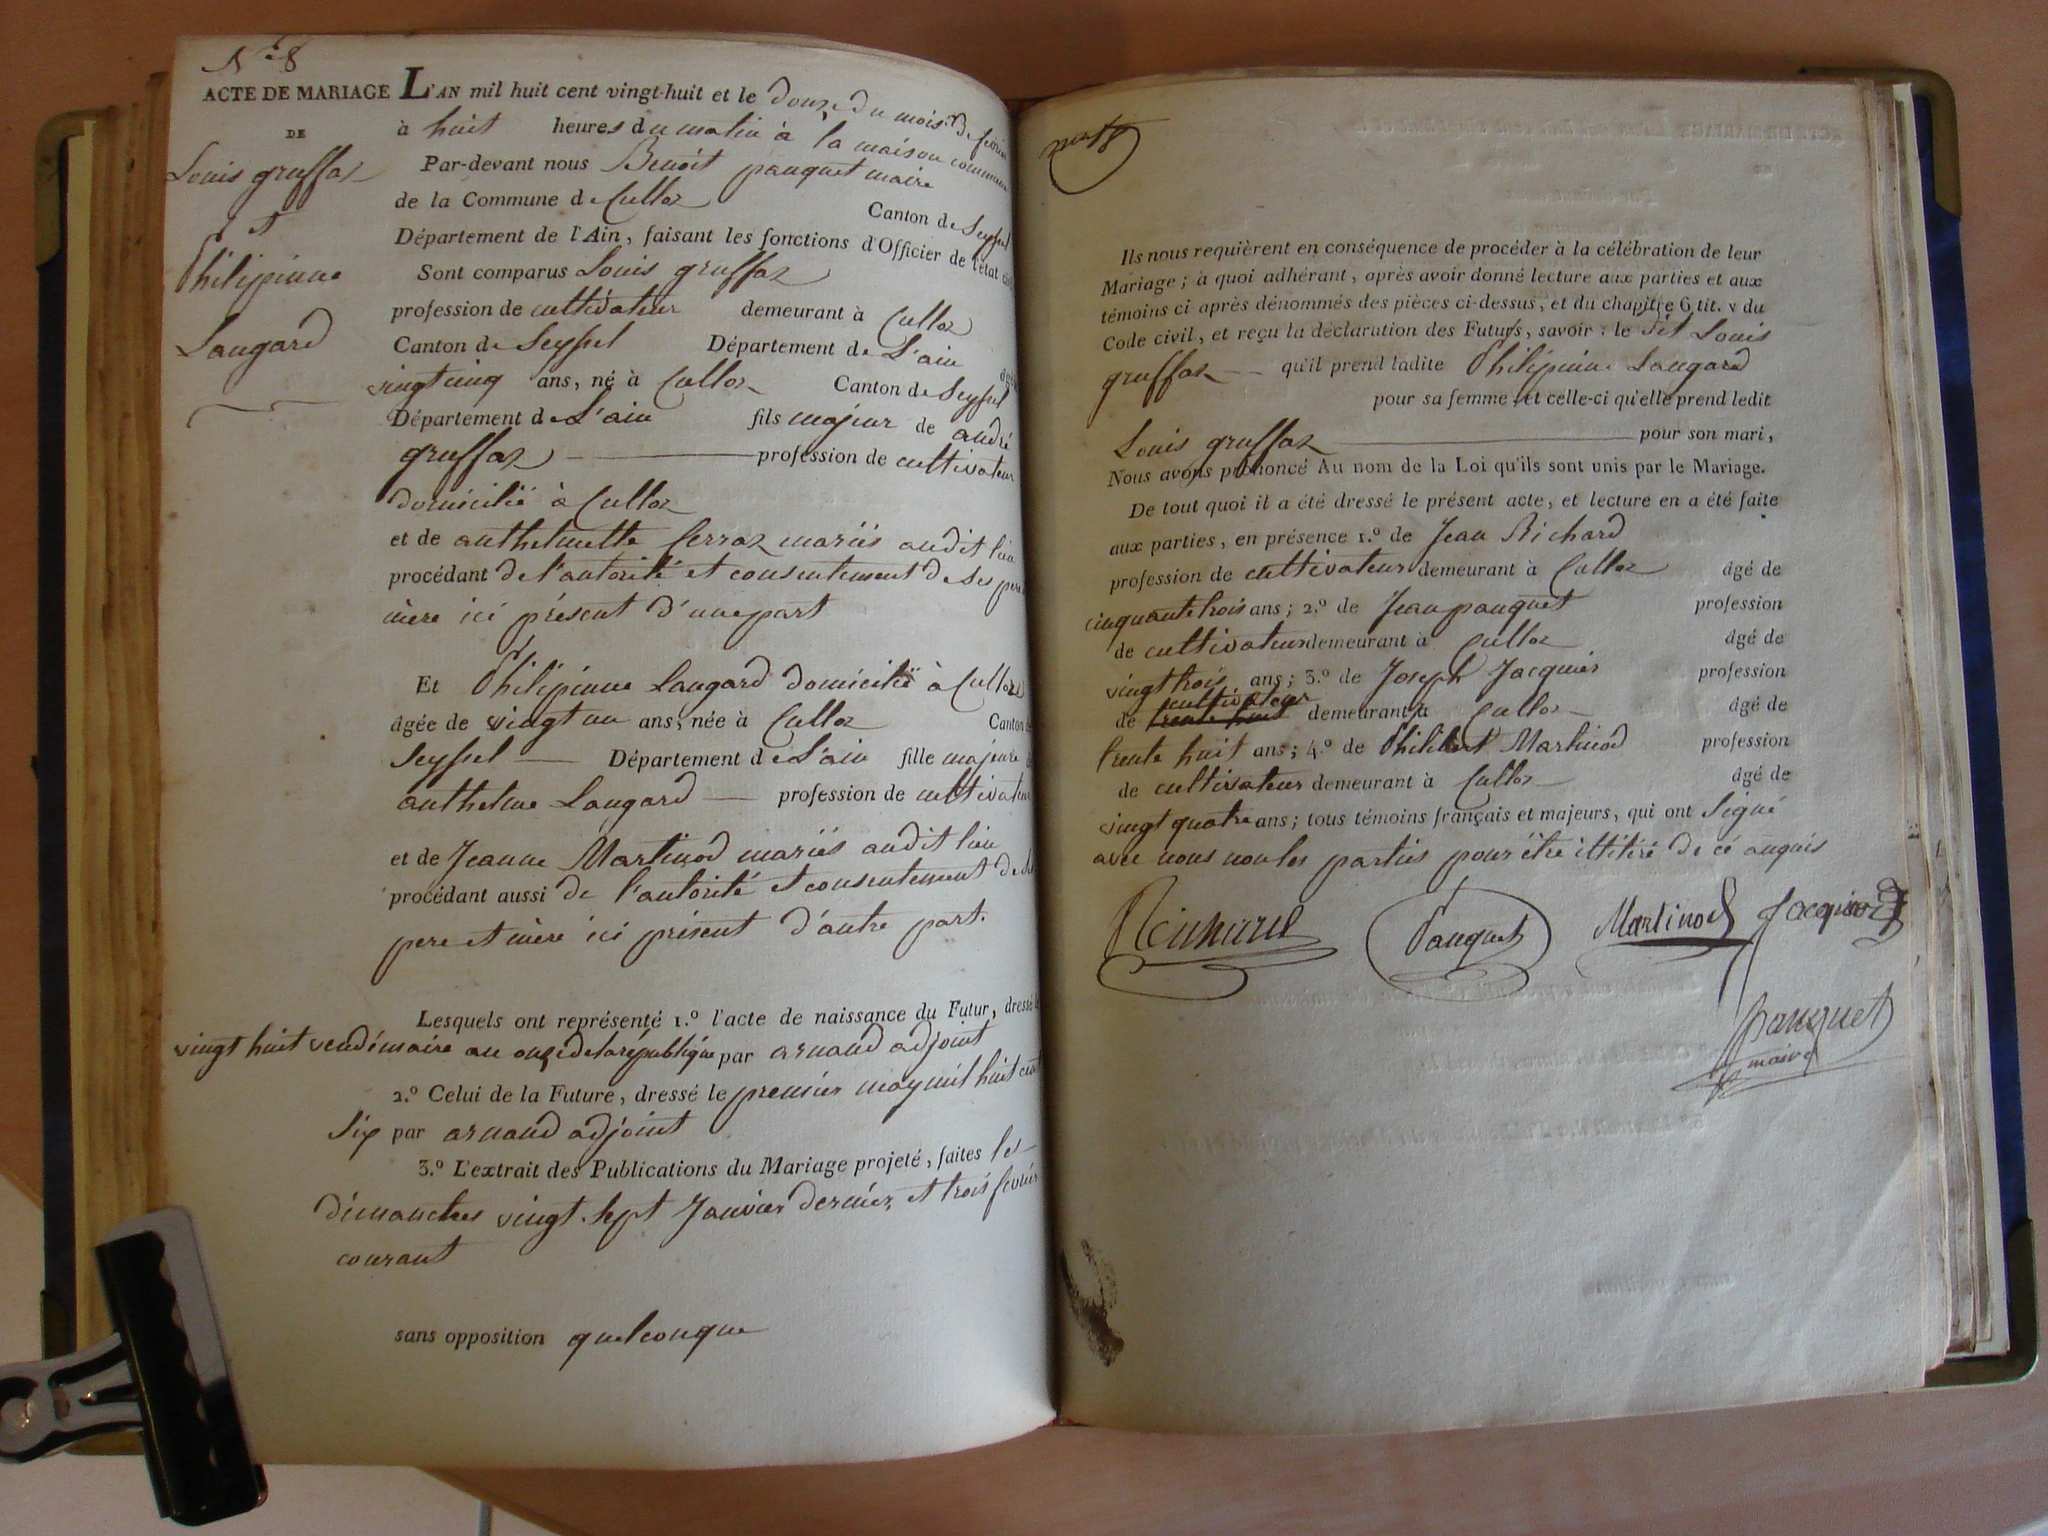 N.e 8
ACTE DE MARIAGE
DE
Louis gruffaz
et
Philipinne
Laugard
L'AN mil huit cent vingt-huit et le douze du mois de février
à huit heures du matin à la maison commune
Par-devant nous Benoît pauquet maire
de la Commune de Culloz Canton de Seyssel
Département de l'Ain, faisant les fonctions d'Officier de l'état civil
Sont comparus Louis gruffaz
profession de cultivateur demeurant à Culloz
Canton de Seyssel Département de L'ain âgé
vingt cinq ans, né à Culloz Canton de Seyssel
Département de L'ain fils majeur de andré
gruffaz profession de cultivateur
domicilié à Culloz
et de anthelmette ferraz mariés audit lieu
procédant de l'autorité et consentement de ses pere
mère ici présent d'une part
Et Philipinne Laugard domicilié à Culloz
âgée de vingt un ans, née à Culloz Canton de
Seyssel Département de L'ain fille majeure de
anthelme Laugard profession de cultivateur
et de Jeanne Martinod mariés audit lieu
procédant aussi de l'autorité et consentement de ses
pere et mère ici présent d'autre part.
Lesquels ont représenté 1.º l'acte de naissance du Futur, dressé le
vingt huit vendémiaire an onze de la république par arnaud adjoint
2.º Celui de la Future, dressé le premier may mil huit cent
six par arnaud adjoint
3.º L'extrait des Publications du Mariage projeté, faites les
dimanches vingt-sept Janvier dernier, et trois février
courant
sans opposition quelconque
Ils nous requièrent en conséquence de procéder à la célébration de leur
Mariage ; à quoi adhérant, après avoir donné lecture aux parties et aux
témoins ci après dénommés des pièces ci-dessus, et du chapitre 6 tit. v du
Code civil, et reçu la déclaration des Futurs, savoir : le dit Louis
gruffaz qu'il prend ladite Philipinne Laugard
pour sa femme, et celle-ci qu'elle prend ledit
Louis gruffaz pour son mari,
Nous avons prononcé Au nom de la Loi qu'ils sont unis par le Mariage.
De tout quoi il a été dressé le présent acte, et lecture en a été faite
aux parties, en présence 1.º de Jean Richard
profession de cultivateur demeurant à Culloz âgé de
cinquante trois ans ; 2.º de Jean pauquet profession
de cultivateur demeurant à Culloz âgé de
vingt trois ans ; 3.º de Joseph Jacquier profession
cultivateur
de trente huit demeurant à Culloz âgé de
trente huit ans ; 4.º de Philibert Martinod profession
de cultivateur demeurant à Culloz âgé de
vingt quatre ans ; tous témoins français et majeurs, qui ont signé
avec nous non les parties pour être illitéré de ce anquis
Pauquet Martinod Jacquier
pauquet
maire